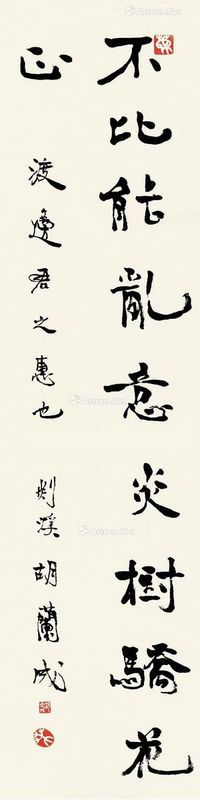 不比能亂意炎樹驕花
正
渡邊君之惠也
剡溪胡蘭成